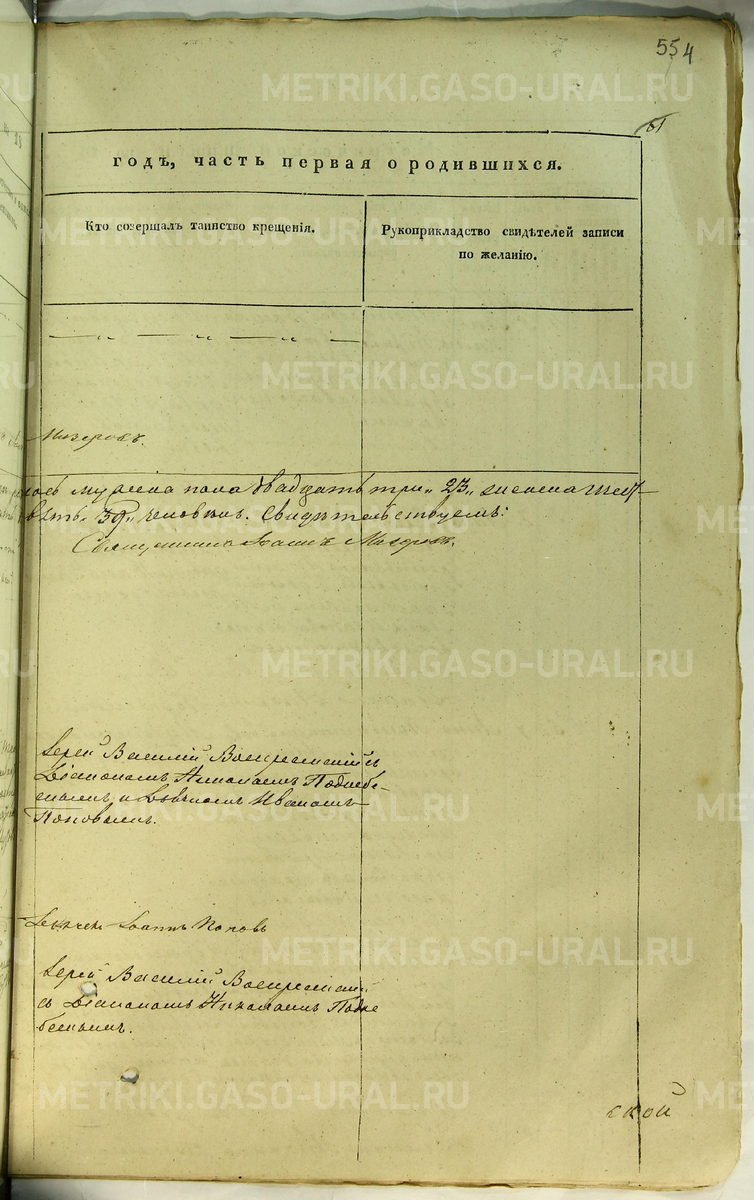 554
61
годъ, часть первая о родившихся.
Кто совершалъ таинство крещенія.
Рукоприкладство свидѣтелей записи
по желанію.
Мизеровъ.
мужеска пола двадцать три „23„ женска
„39„ человѣкъ. Свидѣтельствуемъ:
Священникъ Іоаннъ Мизеровъ.
Іерей Василій Воскресенскій съ
Діакономъ Николаемъ Поднебе-
снымъ и Дьячкомъ Иваномъ
Поповымъ.
Дьячекъ Іоаннъ Поповъ
Іерей Василій Воскресенскій
съ Діакономъ Николаемъ Подне
беснымъ.
ской
METRIKI.GASO-URAL.RU